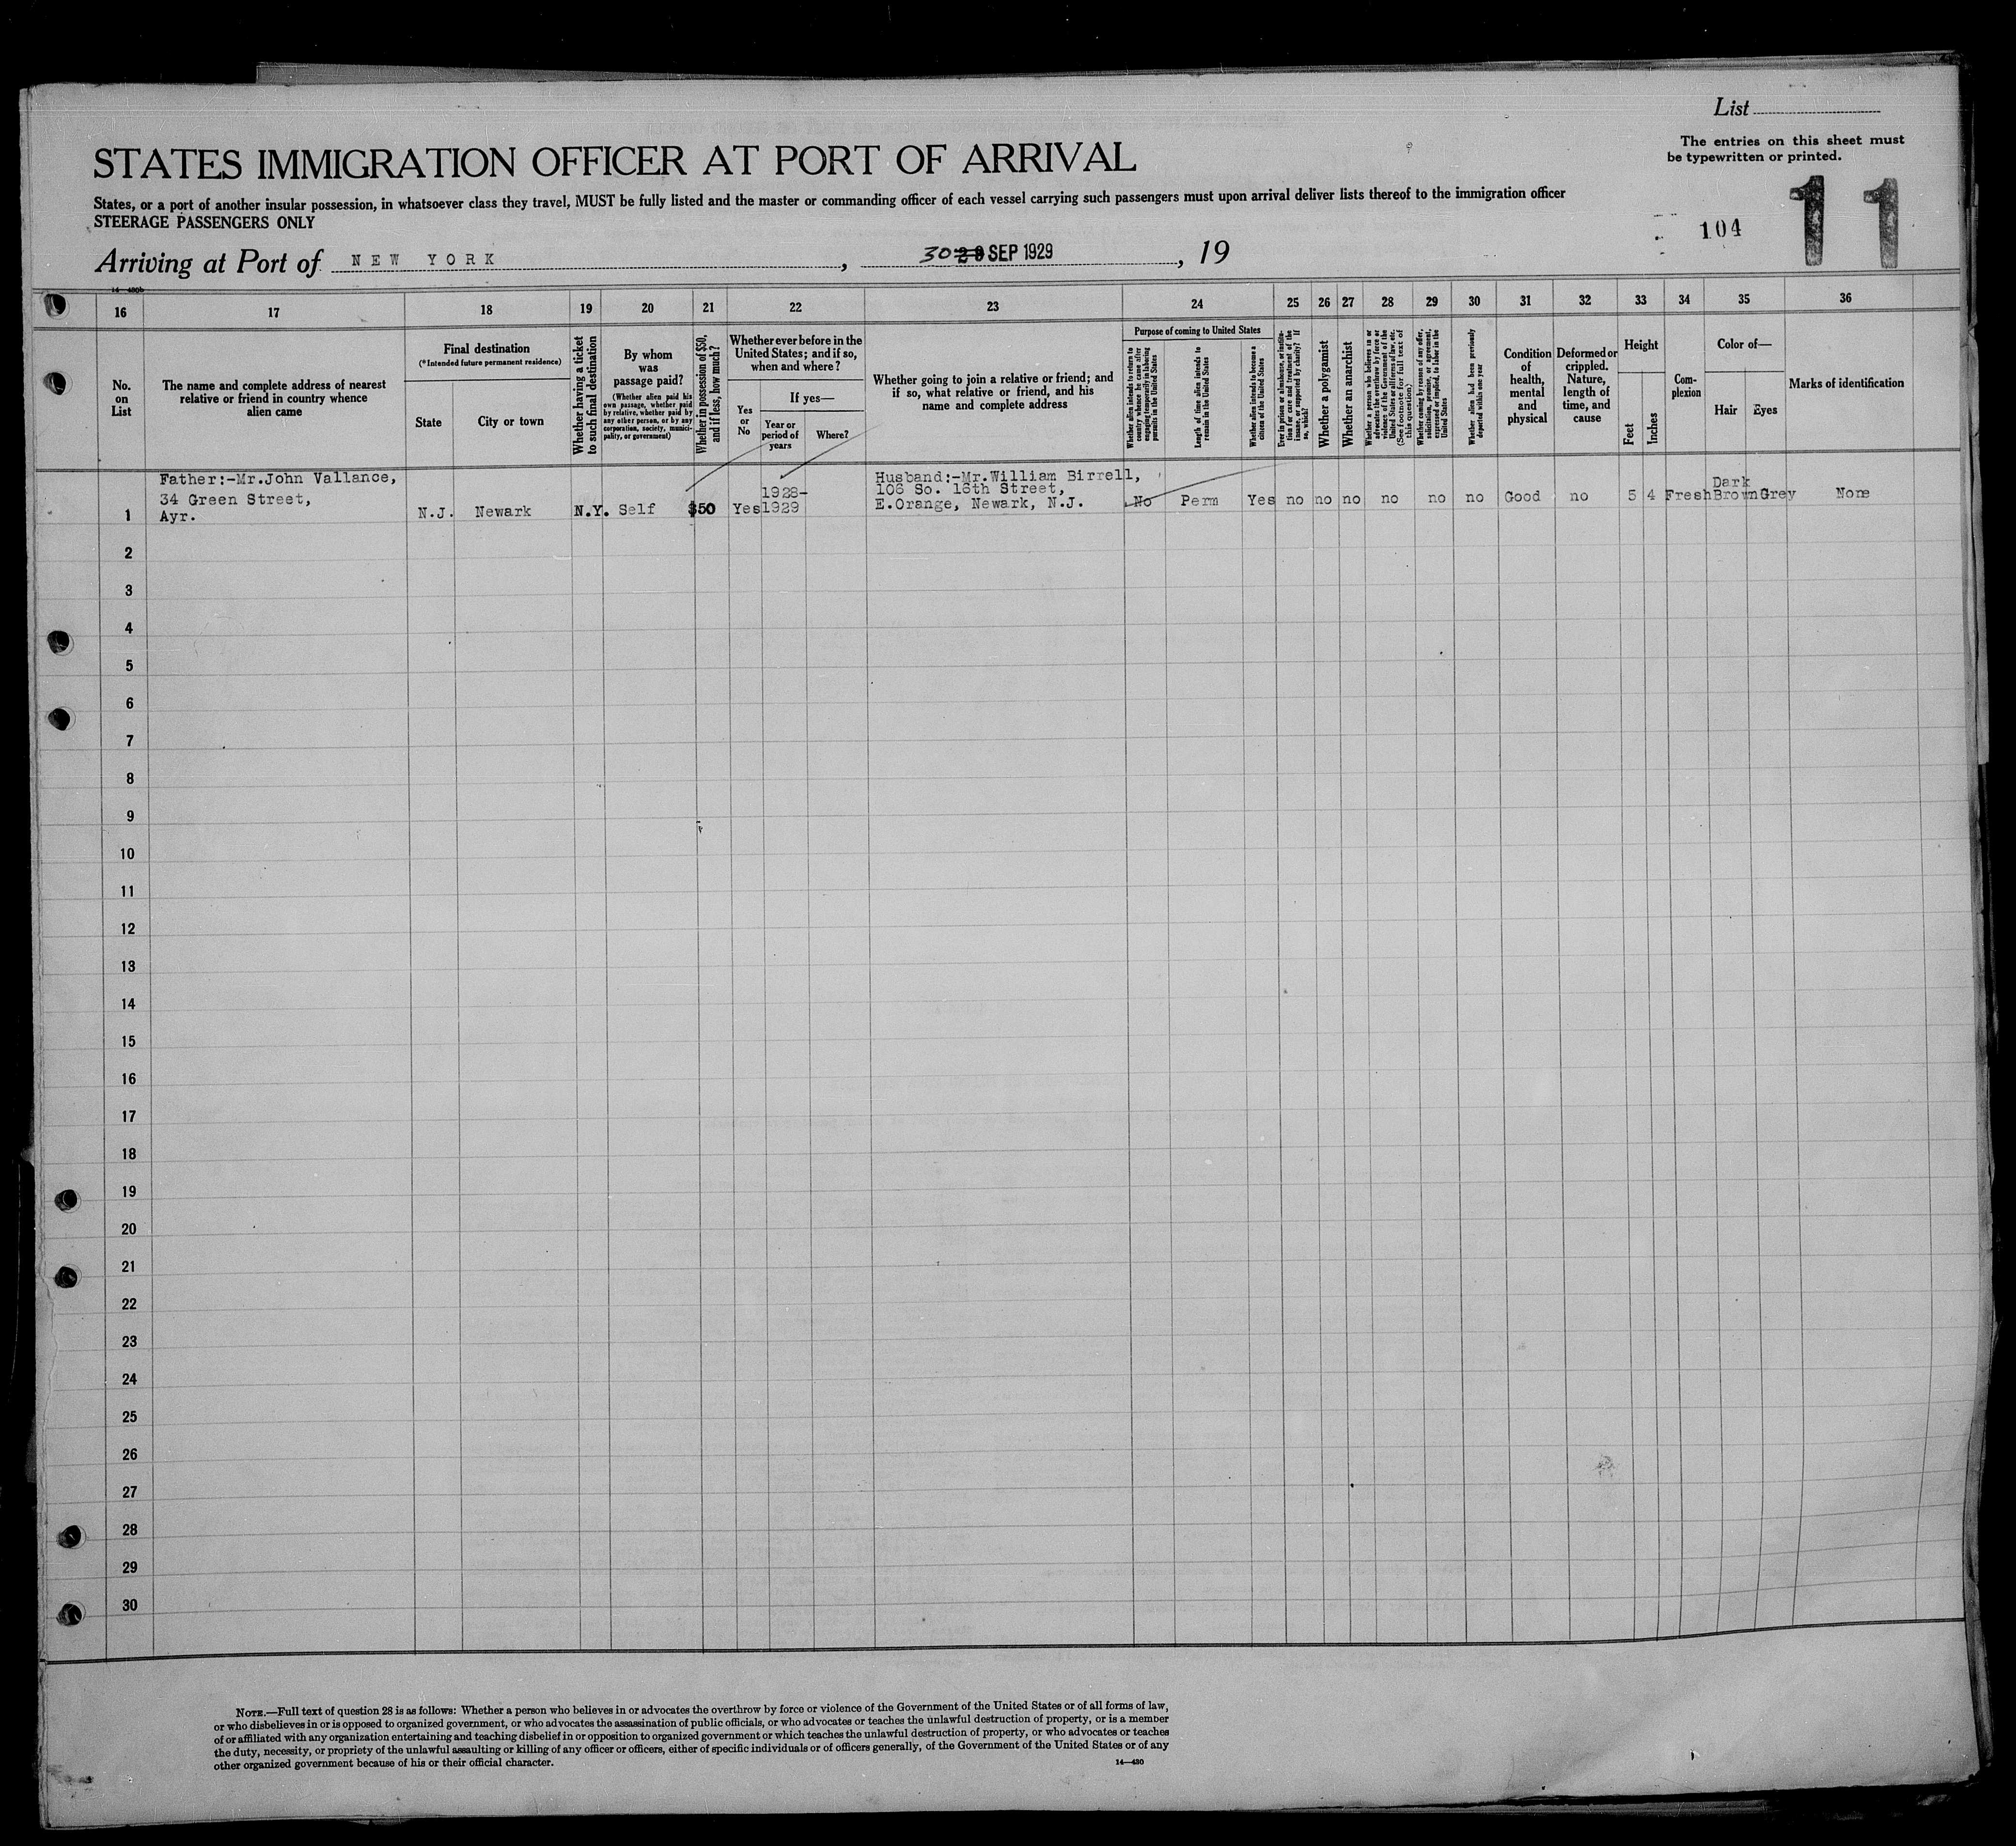 List
The entries on this sheet must
be typewritten or printed.
STATES IMMIGRATION OFFICER AT PORT OF ARRIVAL
States, or a port of another insular possession, in whatsoever class they travel, MUST be fully listed and the master or commanding officer of each vessel carrying such passengers must upon arrival deliver lists thereof to the immigration officer
STEERAGE PASSENGERS ONLY
104
11
Arriving at Port of NEW YORK, 30 29 SEP 1929, 19
14—430b
16 17 18 19 20 21 22 23 24 25 26 27 28 29 30 31 32 33 34 35 36
No.
on
List
The name and complete address of nearest
relative or friend in country whence
alien came
Final destination
(*Intended future permanent residence)
State
City or town
Whether having a ticket
to such final destination
By whom
was
passage paid?
(Whether alien paid his
own passage, whether paid
by relative, whether paid by
any other person, or by any
corporation, society, munici-
pality, or government)
Whether in possession of $50,
and if less, how much?
Whether ever before in the
United States; and if so,
when and where?
Yes
or
No
If yes—
Year or
period of
years
Where?
Whether going to join a relative or friend; and
if so, what relative or friend, and his
name and complete address
Purpose of coming to United States
Whether alien intends to return to
country whence he came after
engaging temporarily in laboring
pursuits in the United States
Length of time alien intends to
remain in the United States
Whether alien intends to become a
citizen of the United States
Ever in prison or almshouse, or institu-
tion for care and treatment of the
insane, or supported by charity? If
so, which?
Whether a polygamist
Whether an anarchist
Whether a person who believes in or
advocates the overthrow by force or
violence of the Government of the
United States or all forms of law, etc.
(See footnote for full text of
this question.)
Whether coming by reason of any offer,
solicitation, promise, or agreement,
expressed or implied, to labor in the
United States
Whether alien had been previously
deported within one year
Condition
of
health,
mental
and
physical
Deformed or
crippled.
Nature,
length of
time, and
cause
Height
Feet
Inches
Com-
plexion
Color of—
Hair
Eyes
Marks of identification
Father:-Mr.John Vallance,
34 Green Street,
Ayr.
1 N.J. Newark N.Y. Self $50 Yes
1928-
1929
Husband:-Mr.William Birrell,
106 So. 16th Street,
E.Orange, Newark, N.J.
No Perm Yes no no no no no no Good no 5 4 Fresh
Dark
Brown Grey None
2
3
4
5
6
7
8
9
10
11
12
13
14
15
16
17
18
19
20
21
22
23
24
25
26
27
28
29
30
NOTE.—Full text of question 28 is as follows: Whether a person who believes in or advocates the overthrow by force or violence of the Government of the United States or of all forms of law,
or who disbelieves in or is opposed to organized government, or who advocates the assassination of public officials, or who advocates or teaches the unlawful destruction of property, or is a member
of or affiliated with any organization entertaining and teaching disbelief in or opposition to organized government or which teaches the unlawful destruction of property, or who advocates or teaches
the duty, necessity, or propriety of the unlawful assaulting or killing of any officer or officers, either of specific individuals or of officers generally, of the Government of the United States or of any
other organized government because of his or their official character.
14—430